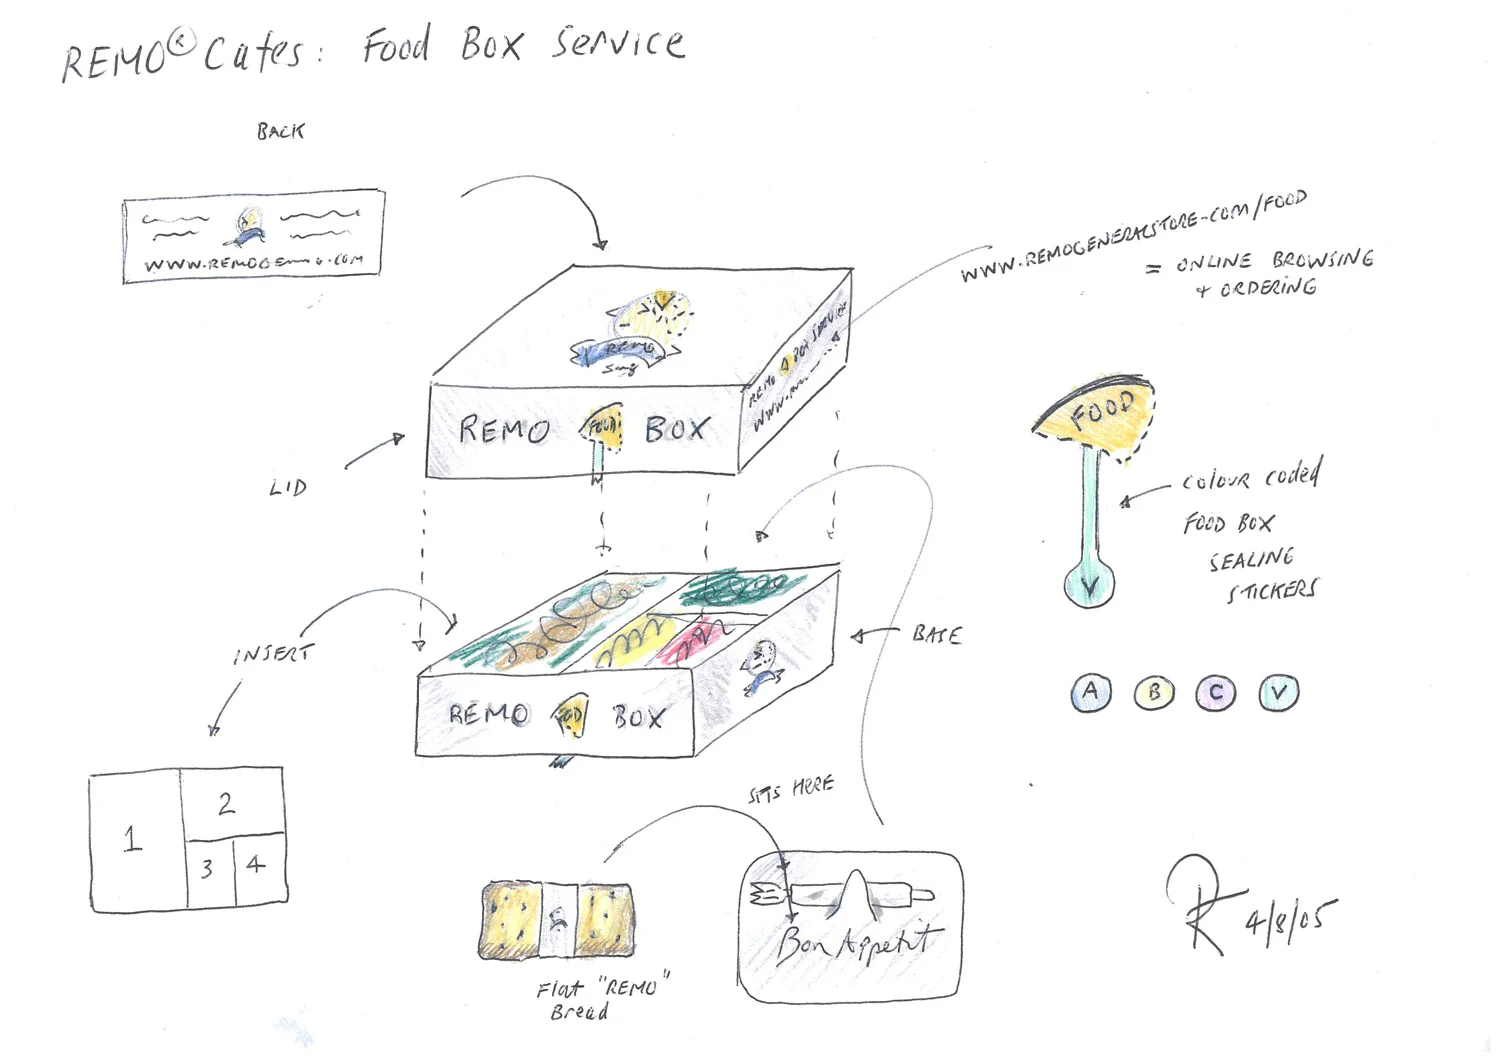 REMO® Cates: Food Box Service
BACK
WWW.REMOGE
.COM
WWW.REMOGENERALSTORE.COM/FOOD
= ONLINE BROWSING
+ ORDERING
REMO
REMO BOX SERVICE
WWW.
REMO FOOD BOX
LID
FOOD
COLOUR CODED
FOOD BOX
SEALING
STICKERS
V
INSERT
BASE
REMO FOOD BOX
A B C V
1
2
3 4
SITS HERE
Bon Appetit
Flat "REMO"
Bread
R 4/8/05